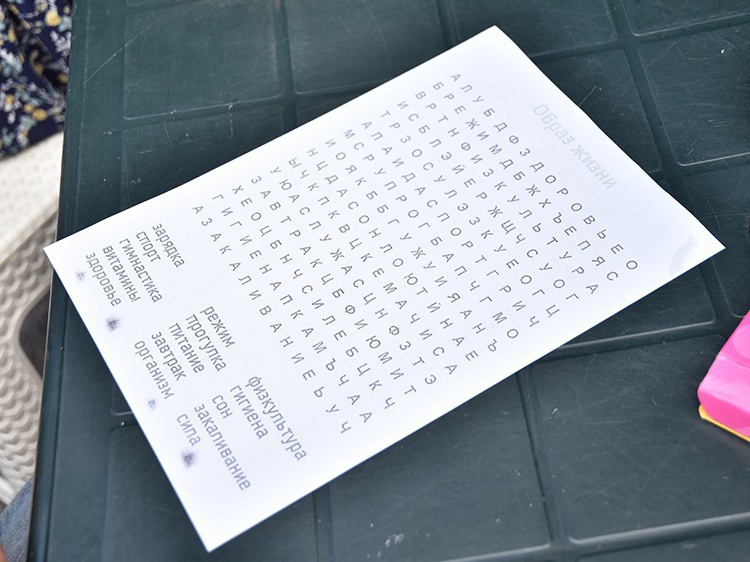 Образ жизни
А Л У Б Д Ф З Д О Р О В Ь Е О
Б Р Е Ж И М Д Б Ж Х Ъ Е П Я С
В Р Т Н Ф И З К У Л Ь Т У Р А
И С Б Л Э Й Е Р Ж Щ Ч С У О Г
Т Р З О С У Л Э З К У Е О Г Ц
А П А И Д А С П О Р Т Г Р И Ч
М С Р У П Р О Г Б А П Ч Г М О
И О Я К Б Б Г У Ж У И Я А Н Ъ
Н Ц Д А С О Н Л О Ю Т Й Н А Е
Ы Ч К П К В Ц К Е М А Ч И С А
У Ю А С Л У Ж А С Ц Н Ф З Т Э
З А В Т Р А К Ц Б Ф И Ю М И Т
Х Е О Ц Б Н Ч С И Л Е Б Ц К Ч
Г И Г И Е Н А П К А М Ъ Ч А А
А З А К А Л И В А Н И Е Ь У Ч
зарядка
спорт
гимнастика
витамины
здоровье
режим
прогулка
питание
завтрак
организм
физкультура
гигиена
сон
закаливание
сила